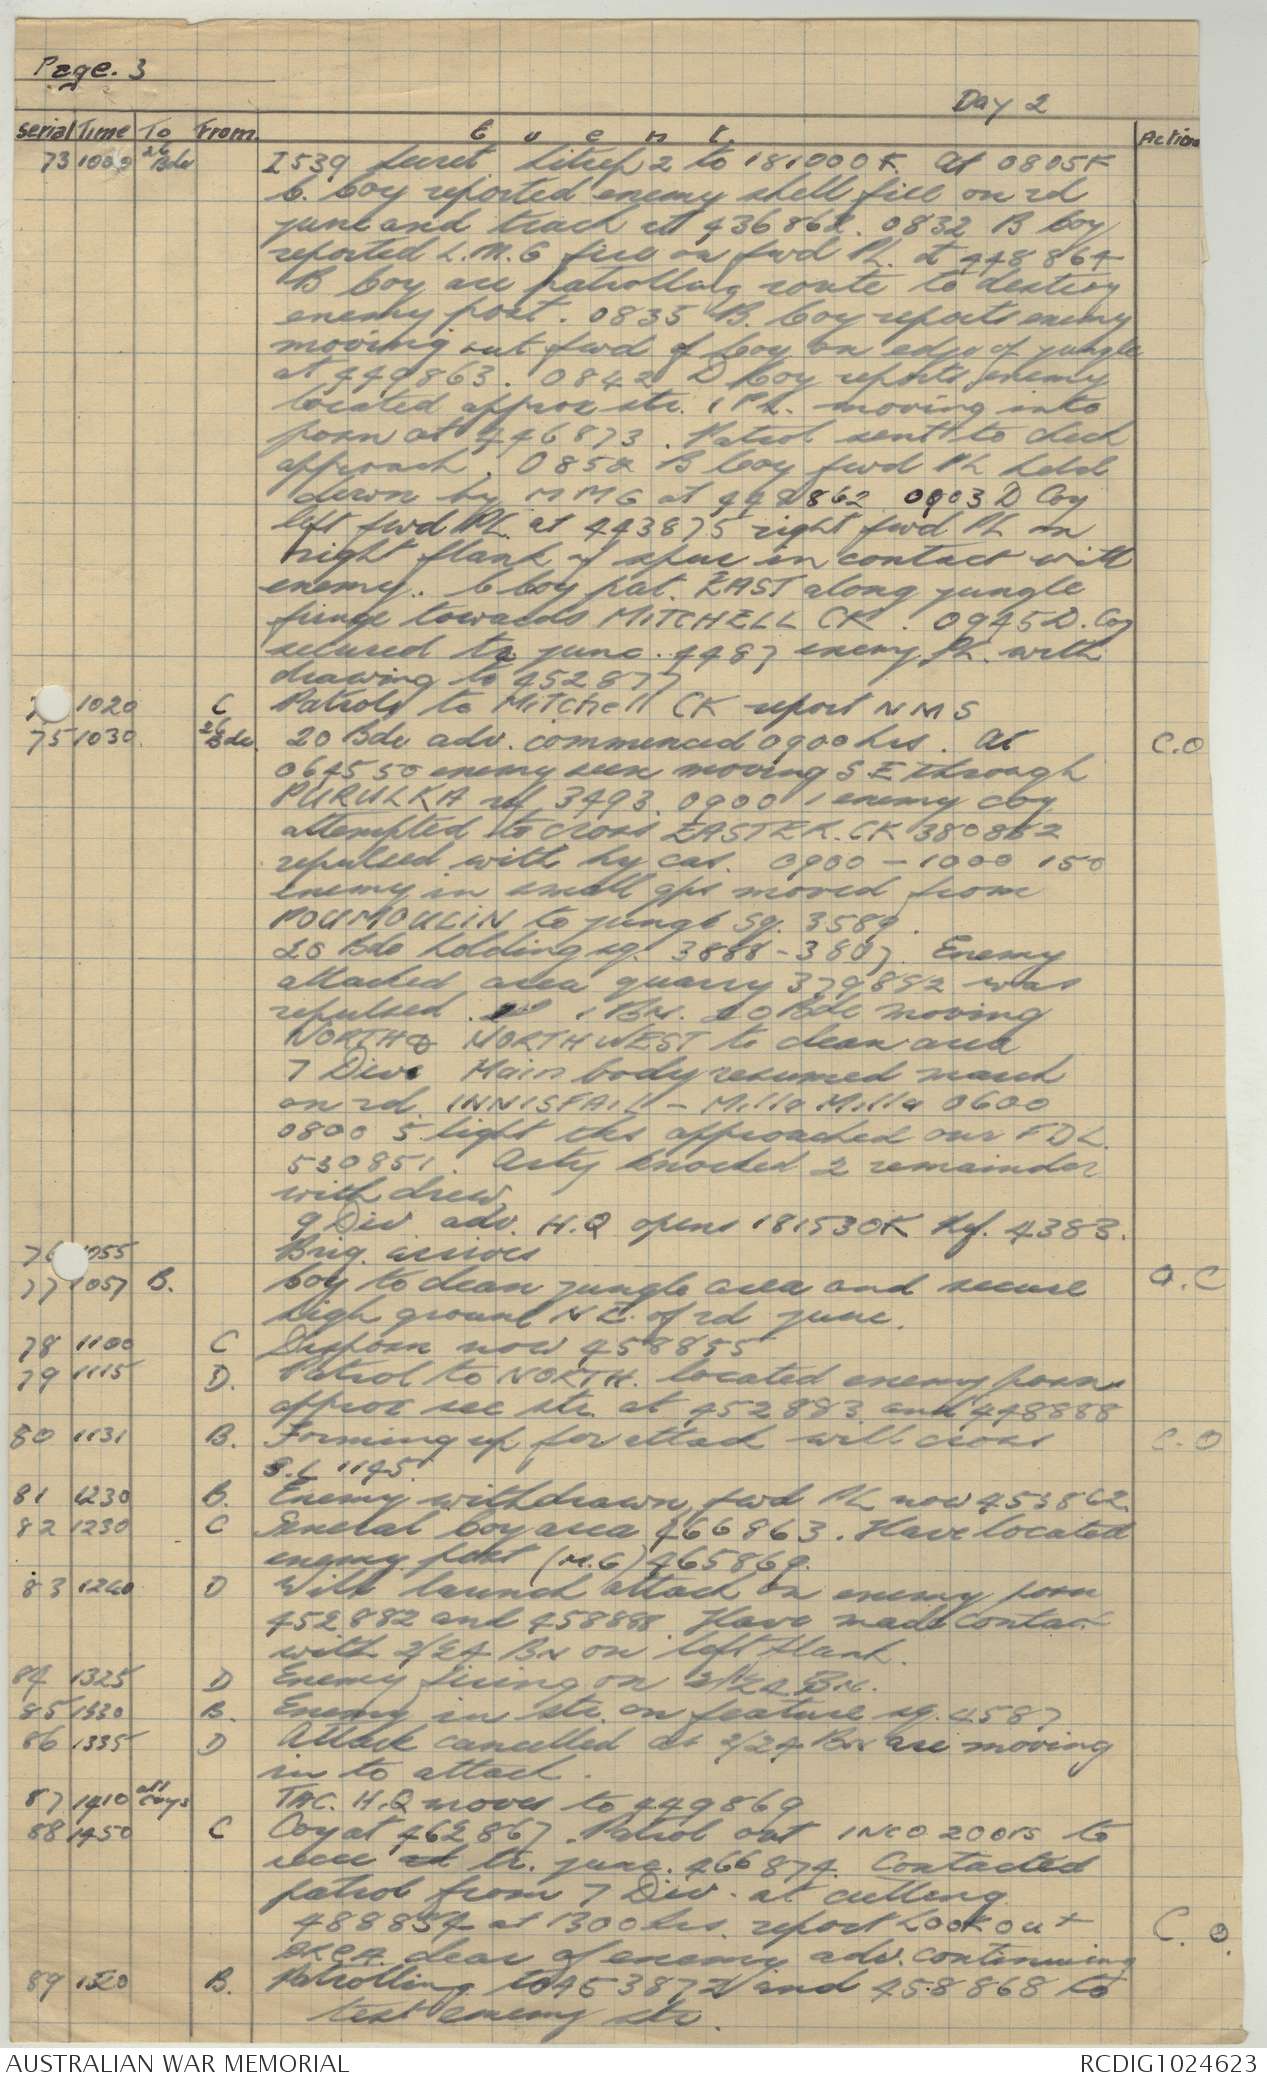 Page. 3
Day 2
Serial Time To From. Event. Action
73 1000 26 Bde I539 secret Sitrep 2 to 181000K. At 0805K
C. Coy reported enemy shell fire on rd
junc and track at 436862. 0832 B Coy
reported L.M.G fire on fwd Pl. at 448864
B Coy are patrolling route to destroy
enemy post. 0835 B. Coy reports enemy
moving out fwd of Coy on edge of jungle
at 449863. 0842 D Coy reports enemy
located approx str. 1 Pl. moving into
posn at 446873. Patrol sent to check
approach. 0852 B Coy fwd Pl held
down by MMG at 449862 0903 D Coy
left fwd Pl. at 443875 right fwd Pl on
right flank of spur in contact with
enemy. C Coy pat. EAST along jungle
fringe towards MITCHELL CK. 0945 D. Coy
secured tr junc. 4487 enemy Pl. with
drawing to 452877
1020 C Patrols to Mitchell CK report NMS
75 1030. 26 Bde. 20 Bde adv. commenced 0900 hrs. At C.O
0645 50 enemy seen moving SE through
PURULKA ref 3493. 0900 1 enemy coy
attempted to cross EASTER. CK 380882
repulsed with hy cas. 0900 - 1000 150
enemy in small gps moved from
POUMOULIN to jungle Sq. 3589.
20 Bde holding sq. 3888 - 3887. Enemy
attacked area quarry 379892 was
repulsed. 1 Bn. 20 Bde moving
NORTH & NORTHWEST to clear area
7 Div. Main body resumed march
on rd. INNISFAIL - Milla Milla 0600
0800 5 light tks approached our FDL.
530851. Arty knocked 2 remainder
withdrew,
9 Div adv. H.Q opens 181530K Ref. 4383.
76 1055 Brig. arrives
77 1057 B. Coy to clear jungle area and secure O.C
high ground N.E. of rd junc.
78 1100 C Disposn now 458855
79 1115 D. Patrol to NORTH. located enemy posns
approx sec str. at 452883 and 448888
80 1131 B. Forming up for attack will cross C.O
S.L 1145.
81 1230 B. Enemy withdrawn fwd Pl now 453862.
82 1230 C General Coy area 466863. Have located
enemy post (M.G) 465869.
83 1240 D Will launch attack on enemy posn
452882 and 458888 Have made contact
with 2/24 Bn on left flank.
84 1325 D Enemy firing on 2/24 Bn.
85 1330 B. Enemy in str. on feature sq. 4587
86 1335 D Attack cancelled as 2/24 Bn are moving
in to attack.
87 1410 all Coys TAC. H.Q moves to 449869
88 1450 C Coy at 462867. Patrol out 1 NCO 2 ORS to
recce tr. junc. 466874. Contacted
patrol from 7 Div. at cutting
488854 at 1300 hrs. report Lookout C.O.
AREA clear of enemy adv. continuing
89 1520 B. Patrolling to 453872 and 458868 to
test enemy str.
AUSTRALIAN WAR MEMORIAL
RCDIG1024623